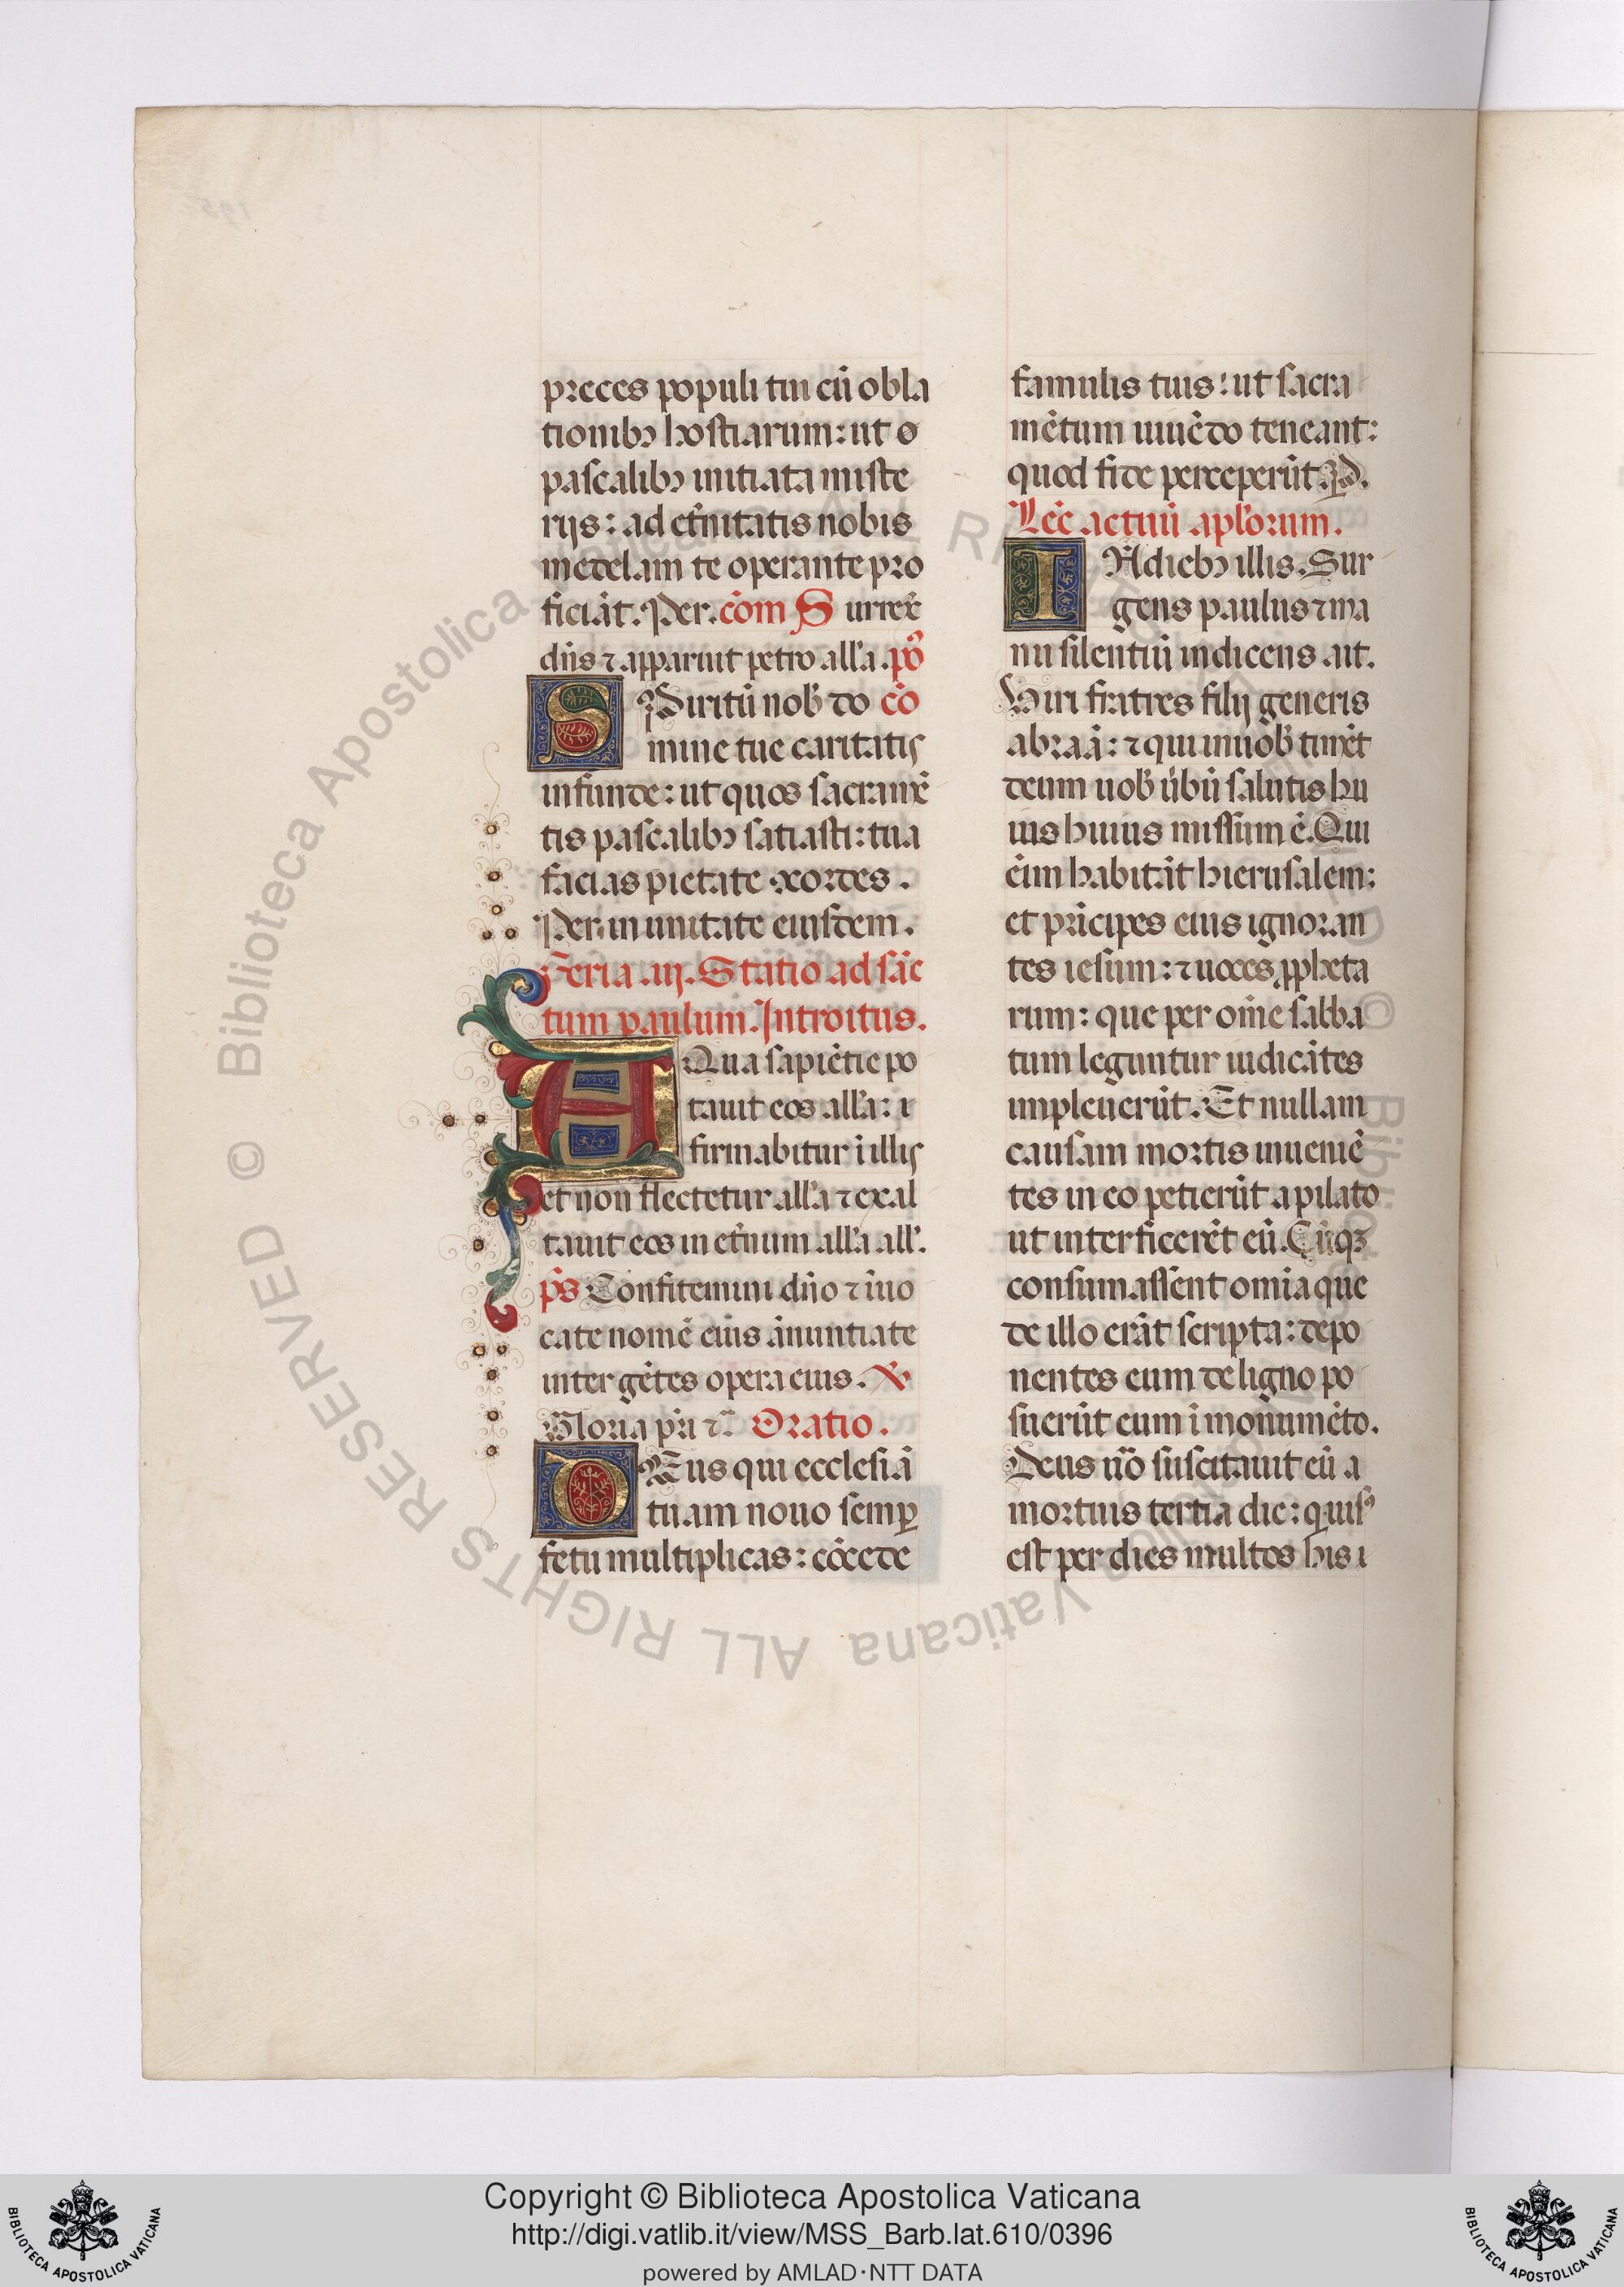 preces populi tui cū obla
tionibꝰ hostiarum: ut ꝋ
pascalibꝰ initiata miste
rijs: ad etn̄itatis nobis
medelam te operante pro
ficiāt. Per. cōm Surrex̄
dn̄s ⁊ apparuit petro all'a. pō
Spiritū nob' do cō
mine tue caritatis
infunde: ut quos sacramē
tis pascalibꝰ satiasti: tua
facias pietate ꝯcordes.
Per. in unitate eiusdem.
Feria .iij. Statio ad sāc
tum paulum. Introitus.
AQua sapiētie po
tauit eos all'a: ⁊
firmabitur ī illis
et non flectetur all'a ⁊ exal
tauit eos in etn̄um all'a all'.
p̄s Confitemini dn̄o ⁊ īuo
cate nomē eius ānuntiate
inter gētes opera eius. ℣
Gloria pr̄i ⁊c̄ Oratio.
DEus qui ecclesiā
tuam nouo semꝑ
fetu multiplicas: cōcede
famulis tuis: ut sacra
mētum uiuēdo teneant:
quod fide perceperūt. P. d.
Lēc actuū apl'orum.
IN diebꝰ illis. Sur
gens paulus ⁊ ma
nu silentiū indicens ait.
Uiri fratres filij generis
abraā: ⁊ qui in uob' timēt
deum uob' ūbū salutis hu
ius huius missum ē. Qui
eīm habitāt hierusalem:
et prīcipes eius ignoran
tes iesum: ⁊ uoces ꝓpheta
rum: que per om̄e sabba
tum leguntur iudicātes
impleuerūt. Et nullam
causam mortis inueniē
tes in eo petierūt a pilato
ut interficerēt eū. Cūqꝫ
consumassent om̄ia que
de illo erāt scripta: depo
nentes eum de ligno po
suerūt eum ī monumēto.
Deus ūo suscitauit eū a
mortuis tertia die: qui uisꝰ
est per dies multos his i
Copyright © Biblioteca Apostolica Vaticana
http://digi.vatlib.it/view/MSS_Barb.lat.610/0396
powered by AMLAD·NTT DATA
BIBLIOTECA APOSTOLICA VATICANA
BIBLIOTECA APOSTOLICA VATICANA
© Biblioteca Apostolica Vaticana ALL RIGHTS RESERVED